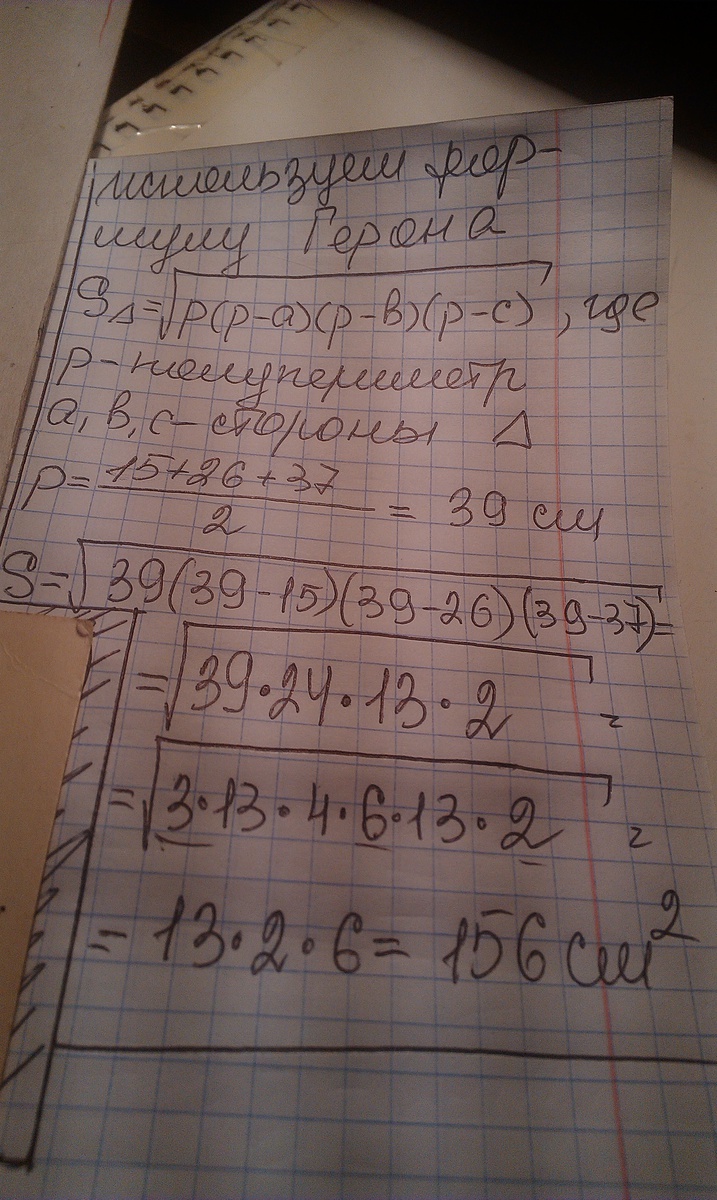 используем фор-
мулу Герона
S△=√p(p-a)(p-в)(p-c), где
p-полупериметр
a, в, c-стороны △
p= 15+26+37/2 = 39 см
S=√39(39-15)(39-26)(39-37)=
=√39·24·13·2 =
=√3·13·4·6·13·2 =
= 13·2·6= 156 см²